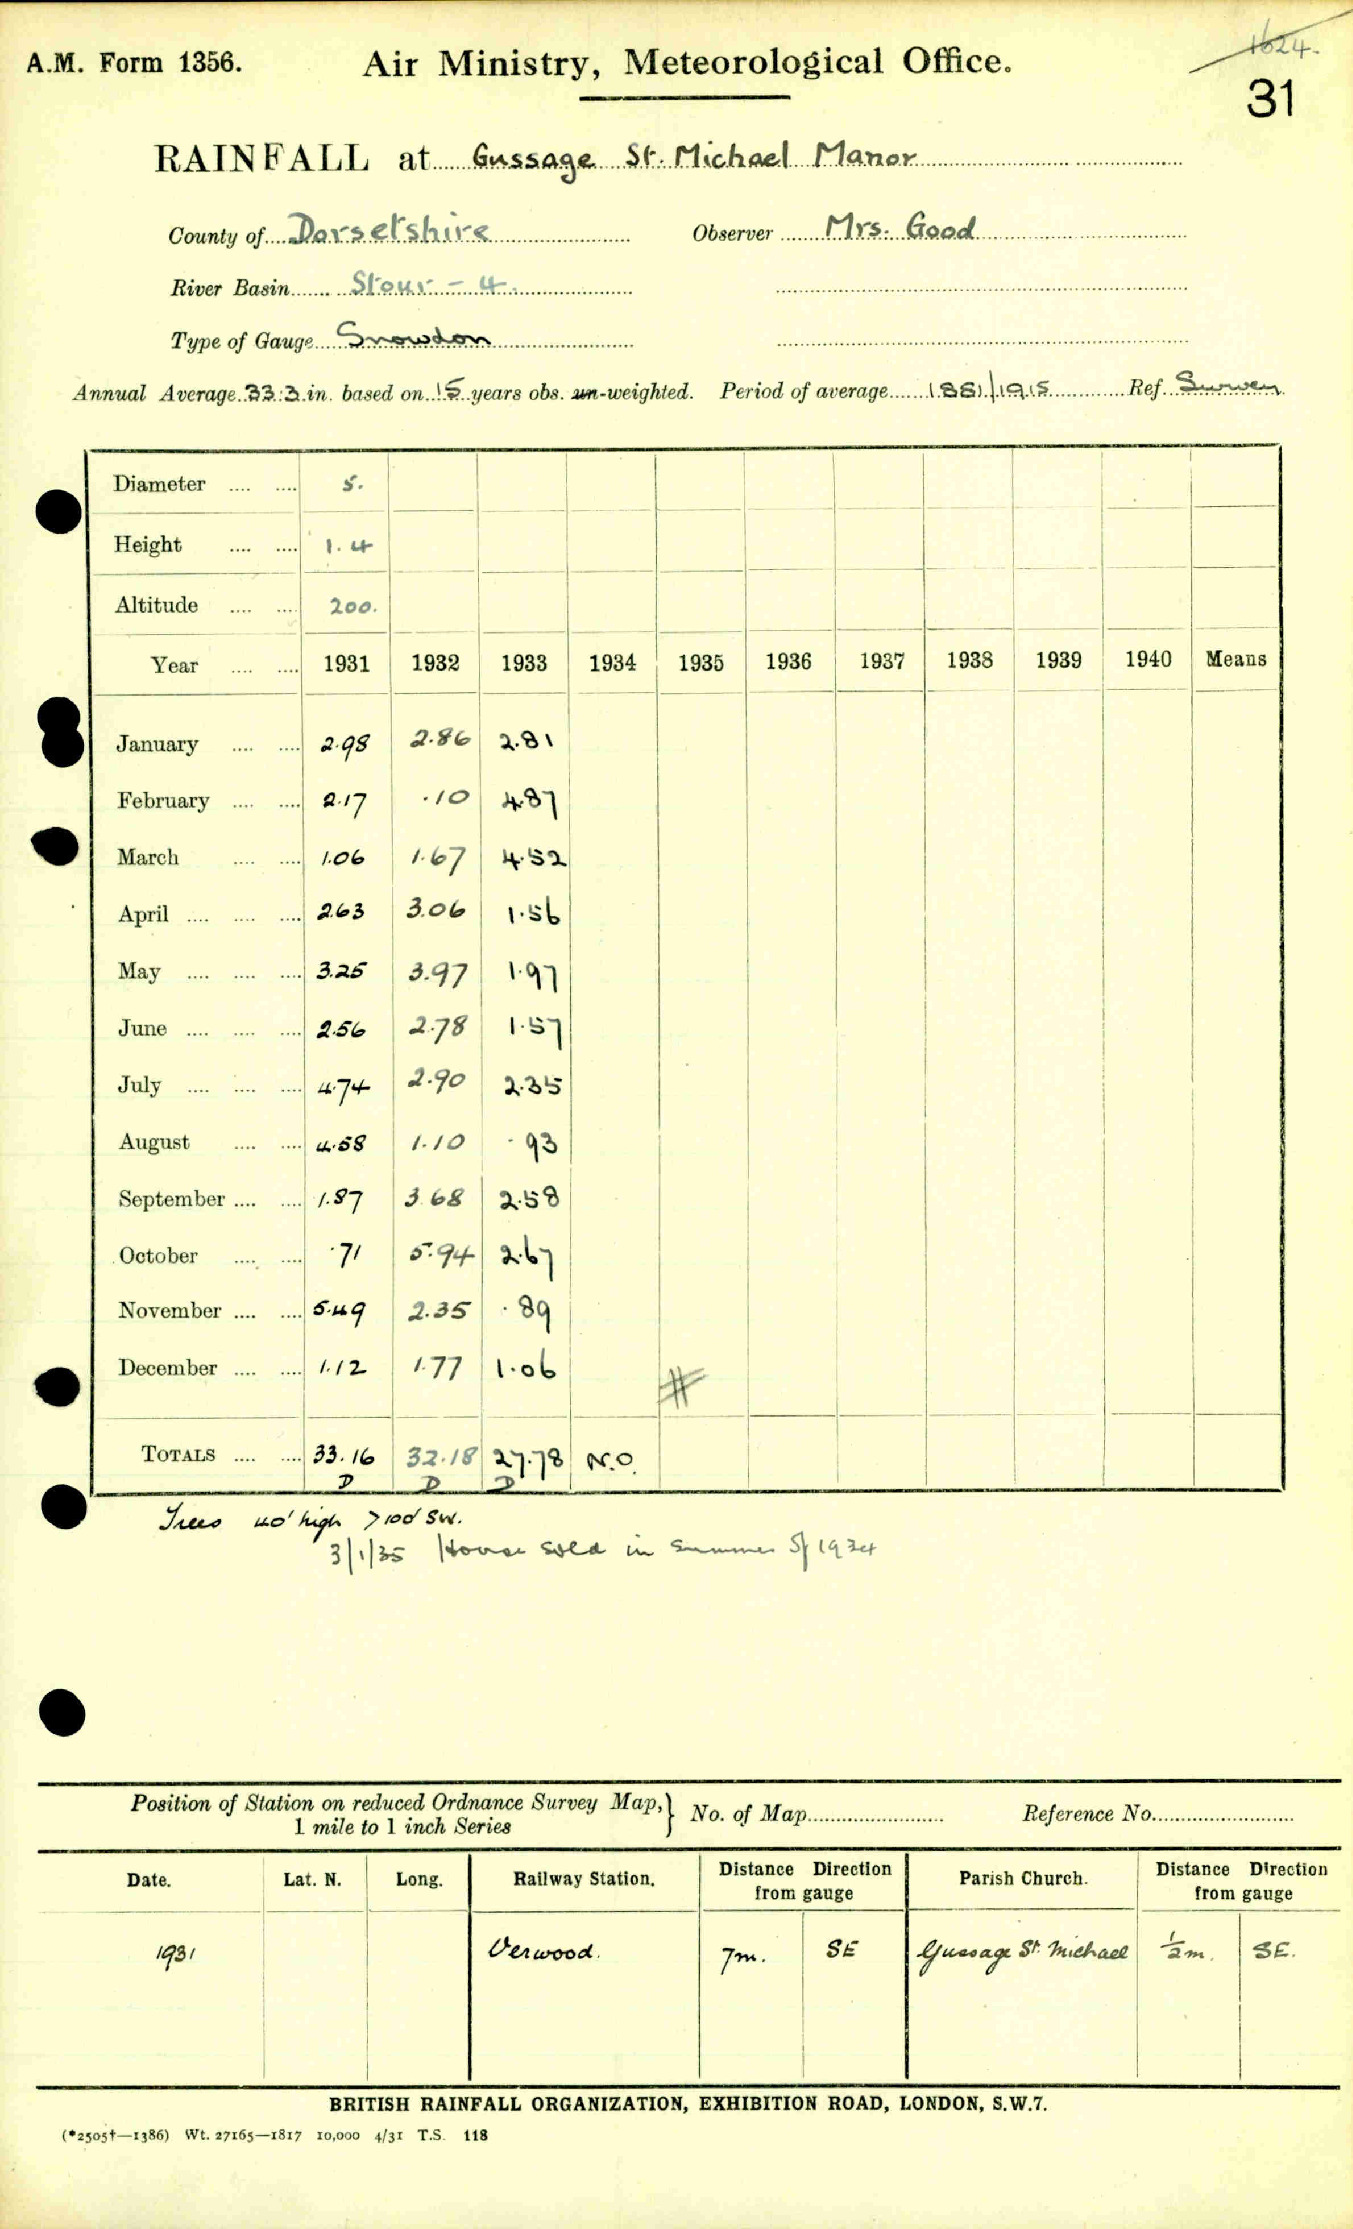 1624.
A.M. Form 1356. Air Ministry, Meteorological Office.
31
RAINFALL at Gussage St. Michael Manor
County of Dorsetshire Observer Mrs. Good
River Basin Stour - 4.
Type of Gauge Snowdon
Annual Average 33.3 in. based on 15 years obs. un-weighted. Period of average 1881/1915 Ref. Survey
Diameter 5.
Height 1.4
Altitude 200.
Year 1931 1932 1933 1934 1935 1936 1937 1938 1939 1940 Means
January 2.98 2.86 2.81
February 2.17 .10 4.87
March 1.06 1.67 4.52
April 2.63 3.06 1.56
May 3.25 3.97 1.97
June 2.56 2.78 1.57
July 4.74 2.90 2.35
August 4.58 1.10 .93
September 1.87 3.68 2.58
October .71 5.94 2.67
November 5.49 2.35 .89
December 1.12 1.77 1.06
#
TOTALS 33.16 32.18 27.78 N.O.
D D D
Trees 40' high >100' SW.
3/1/35 House sold in summer of 1934
Position of Station on reduced Ordnance Survey Map, } No. of Map Reference No.
1 mile to 1 inch Series
Date. Lat. N. Long. Railway Station. Distance Direction from gauge Parish Church. Distance Direction from gauge
1931 Verwood. 7m. SE Gussage St. Michael ½m. SE.
BRITISH RAINFALL ORGANIZATION, EXHIBITION ROAD, LONDON, S.W.7.
(*2505†—1386) Wt. 27165—1817 10,000 4/31 T.S. 118